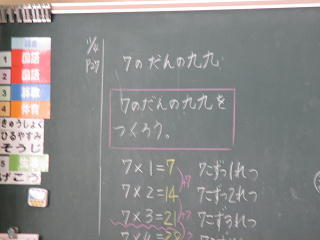 1 国語
2 国語
3 算数
4 体育
きゅうしょく
ひるやすみ
そうじ
5
げこう
11/4
7のだんの九九
7のだんの九九を
つくろう。
7×1=7 7こずつ1れつ
7×2=14 7こずつ2れつ
7×3=21 7こずつ3れつ
7×4=28